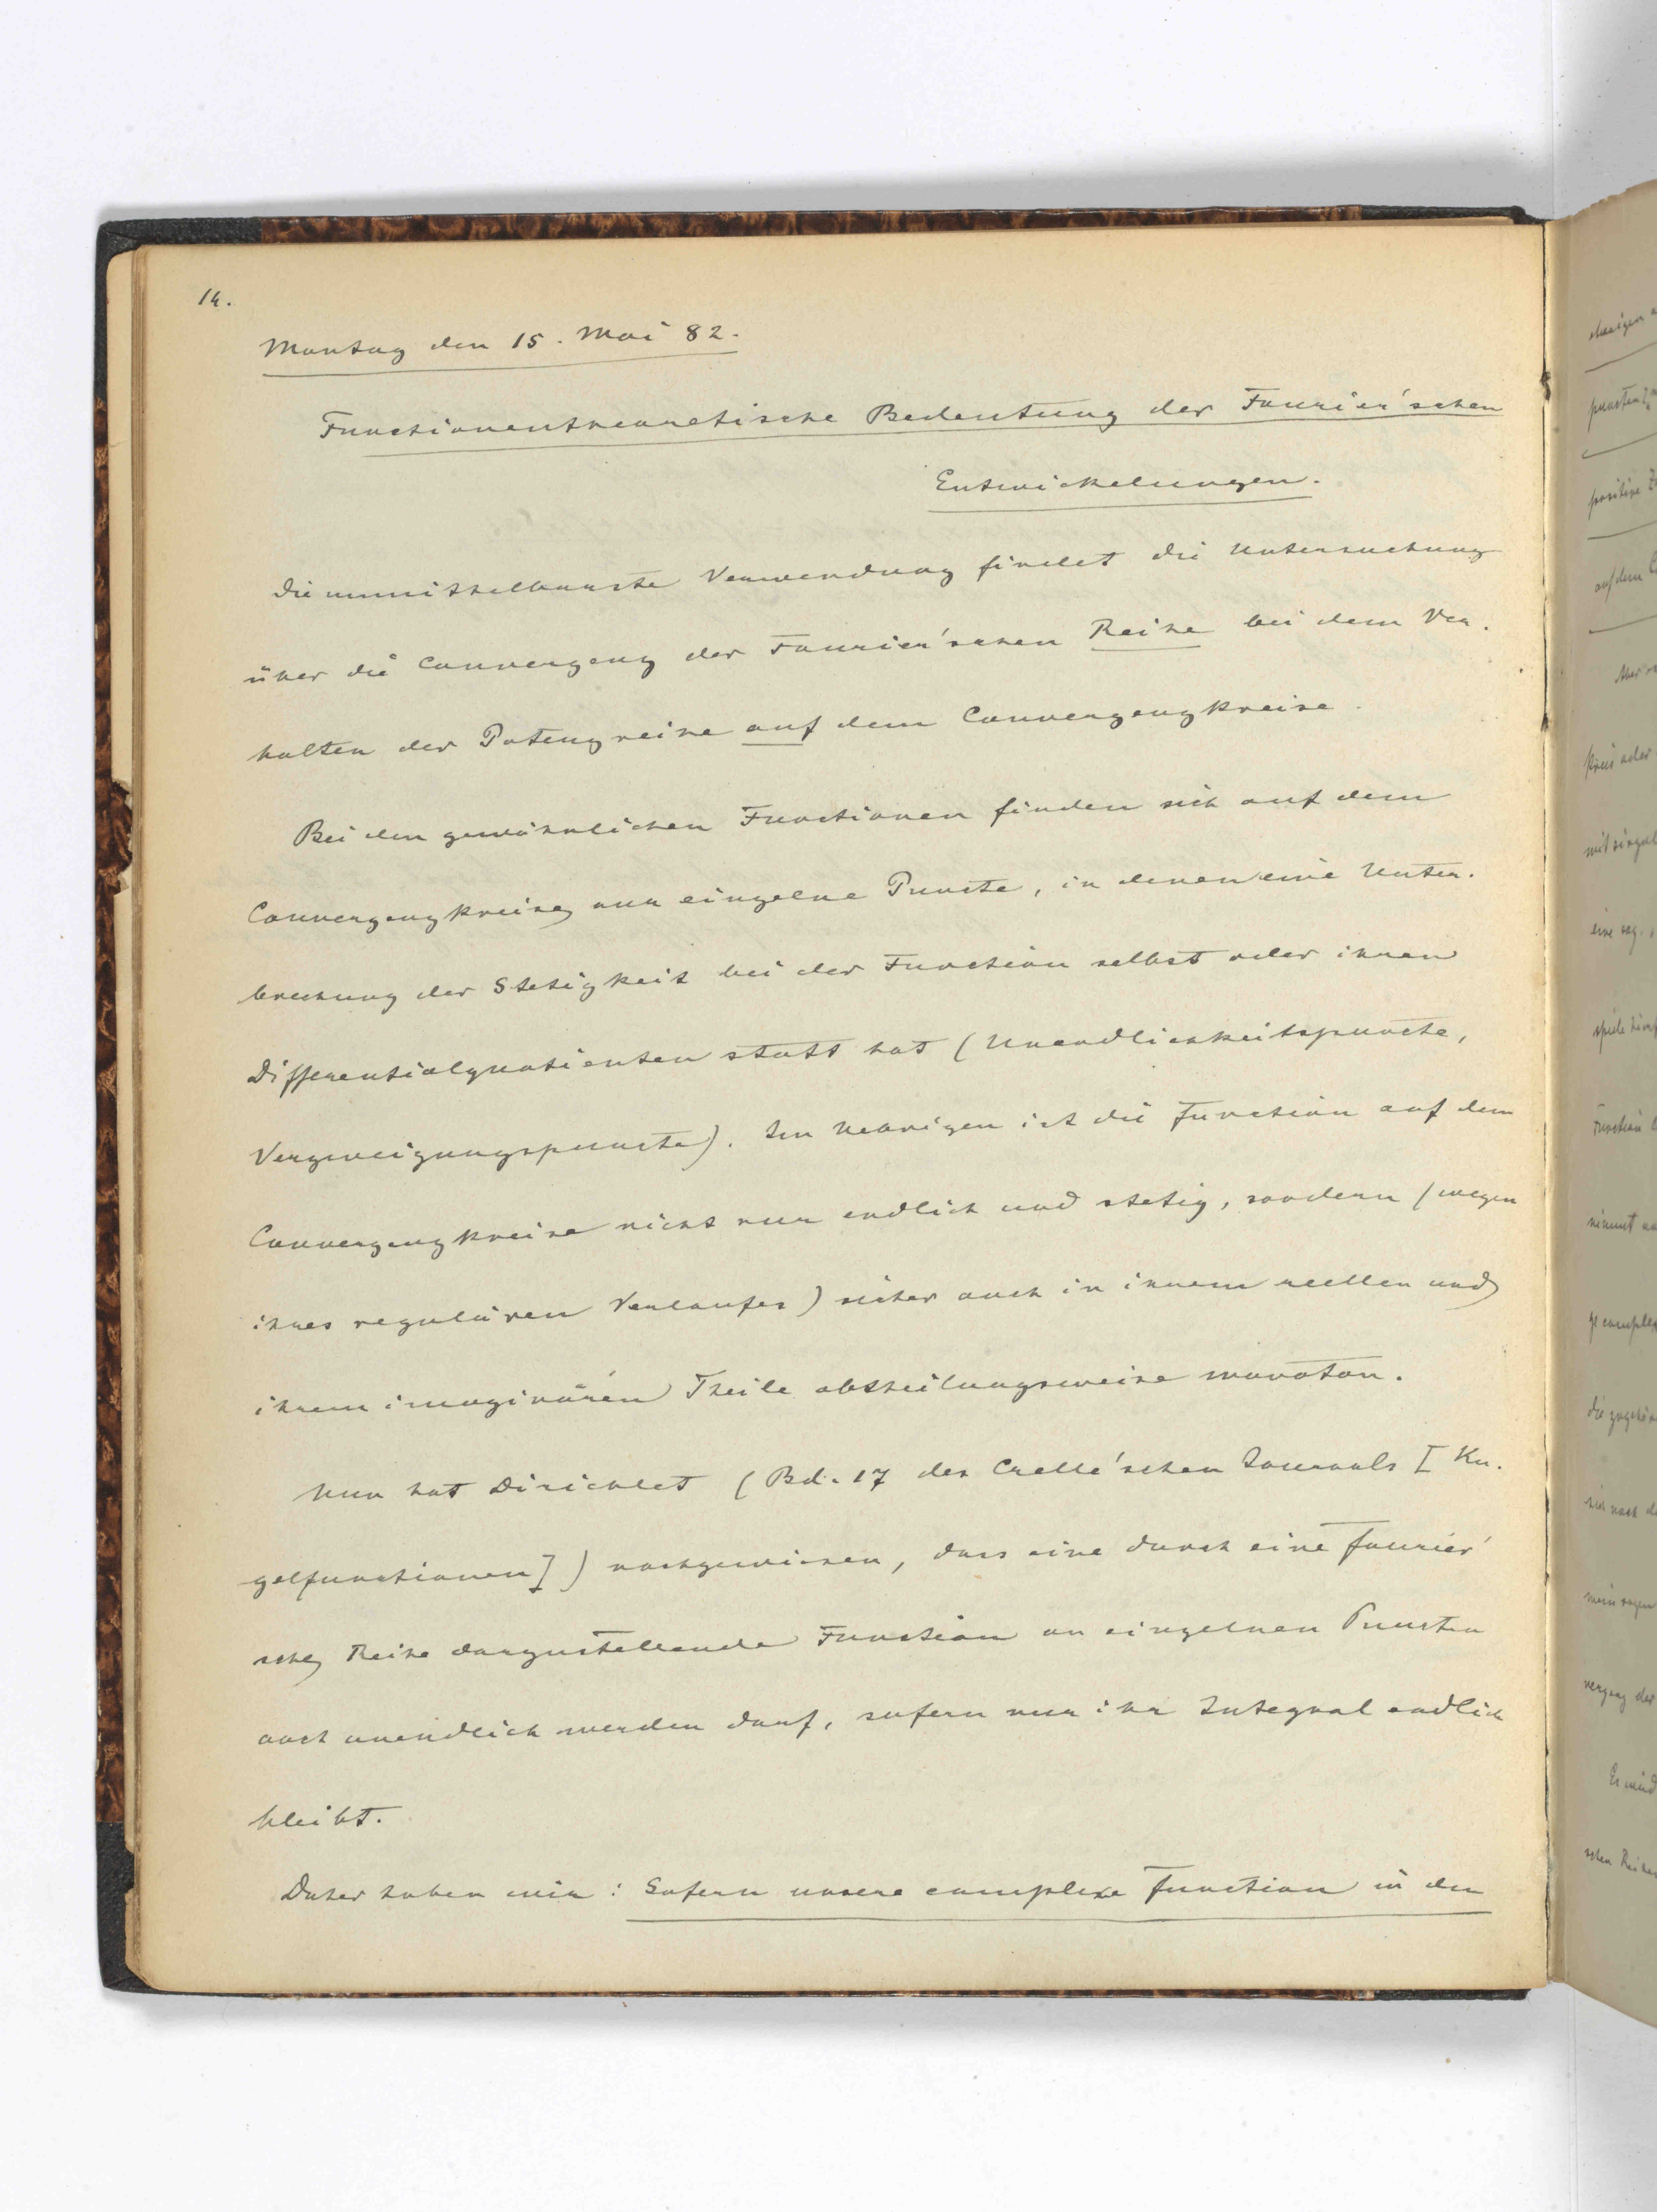 14.
Montag den 15. Mai 82.
Functionentheoretische Bedeutung der Fourier'schen
Entwickelungen.
Die unmittelbarste Verwendung findet die Untersuchung
über die Convergenz der Fourier'schen Reihe bei dem Ver-
halten der Potenzreihe auf dem Convergenzkreise.
Bei den gewöhnlichen Functionen finden sich auf dem
Convergenzkreise nur einzelne Puncte, in denen eine Unter-
brechung der Stetigkeit bei der Function selbst oder ihren
Differentialquotienten statt hat (Unendlichkeitspuncte,
Verzweigungspuncte). Im Uebrigen ist die Function auf dem
Convergenzkreise nicht nur endlich und stetig, sondern (wegen
ihres regulären Verlaufes) sicher auch in ihrem reellen und
ihrem imaginären Theile abtheilungsweise monoton.
Nun hat Dirichlet (Bd. 17 des Crelle'schen Journals [Ku-
gelfunctionen]) nachgewiesen, dass eine durch eine Fourier'
sche Reihe darzustellende Function an einzelnen Puncten
auch unendlich werden darf, sofern nur ihr Integral endlich
bleibt.
Daher haben wir: Sofern unsere complexe Function in den